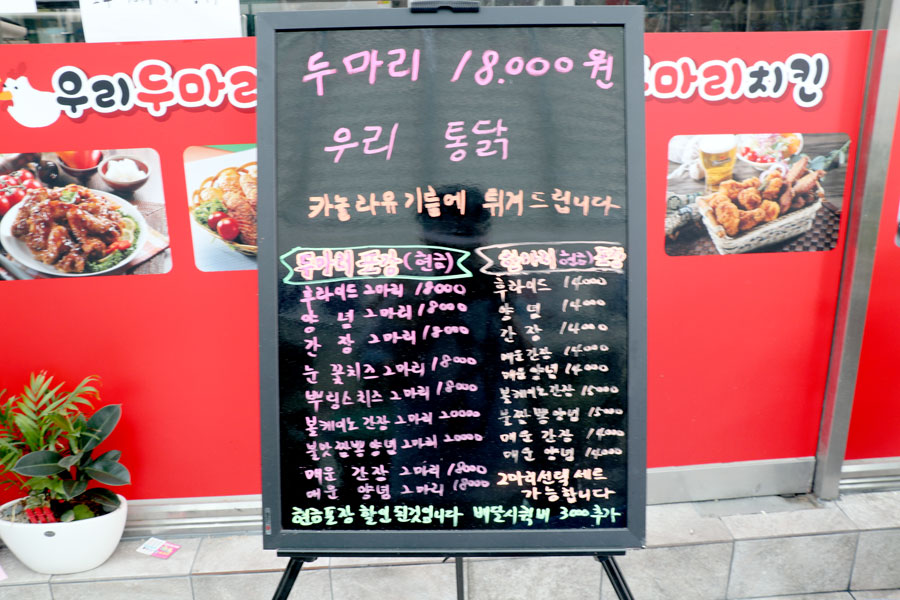 우리두마리
두마리치킨
두마리 18.000원
우리 통닭
카놀라유기름에 튀겨드립니다
두마리 포장(현금)
후라이드 2마리 18000
양념 2마리 18000
간장 2마리 18000
눈꽃치즈 2마리 18000
뿌링스치즈 2마리 18000
볼케이노 간장 2마리 20000
불맛짬뽕양념 2마리 20000
매운 간장 2마리 18000
매운 양념 2마리 18000
한마리 현금 포장
후라이드 14000
양념 14000
간장 14000
매운간장 14000
매운양념 14000
볼케이노간장 15000
불짬뽕양념 15000
매운 간장 14000
매운 양념 14000
2마리선택 세트
가능합니다
현금포장 할인 된것입니다 배달시 3000추가